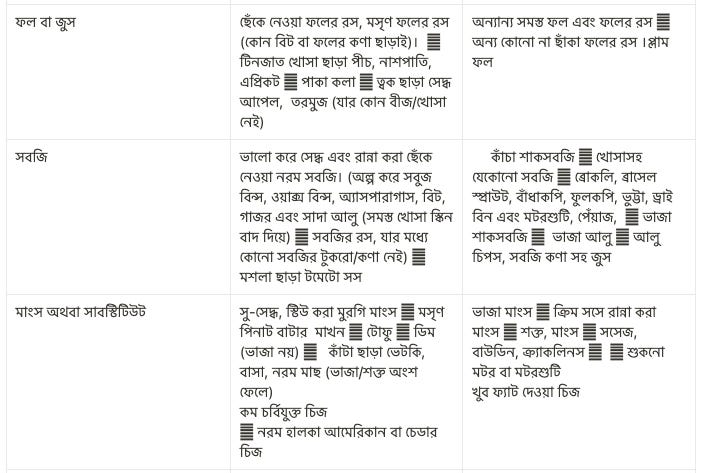 ফল বা জুস
ছেঁকে নেওয়া ফলের রস, মসৃণ ফলের রস
(কোন বিট বা ফলের কণা ছাড়াই)। 𝌆
টিনজাত খোসা ছাড়া পীচ, নাশপাতি,
এপ্রিকট 𝌆 পাকা কলা 𝌆 ত্বক ছাড়া সেদ্ধ
আপেল, তরমুজ (যার কোন বীজ/খোসা
নেই)
অন্যান্য সমস্ত ফল এবং ফলের রস 𝌆
অন্য কোনো না ছাঁকা ফলের রস ।প্লাম
ফল
সবজি
ভালো করে সেদ্ধ এবং রান্না করা ছেঁকে
নেওয়া নরম সবজি। (অল্প করে সবুজ
বিন্স, ওয়াক্স বিন্স, অ্যাসপারাগাস, বিট,
গাজর এবং সাদা আলু (সমস্ত খোসা স্কিন
বাদ দিয়ে) 𝌆 সবজির রস, যার মধ্যে
কোনো সবজির টুকরো/কণা নেই) 𝌆
মশলা ছাড়া টমেটো সস
কাঁচা শাকসবজি 𝌆 খোসাসহ
যেকোনো সবজি 𝌆 ব্রোকলি, ব্রাসেল
স্প্রাউট, বাঁধাকপি, ফুলকপি, ভুট্টা, ড্রাই
বিন এবং মটরশুটি, পেঁয়াজ, 𝌆 ভাজা
শাকসবজি 𝌆 ভাজা আলু 𝌆 আলু
চিপস, সবজি কণা সহ জুস
মাংস অথবা সাবস্টিটিউট
সু-সেদ্ধ, স্টিউ করা মুরগি মাংস 𝌆 মসৃণ
পিনাট বাটার মাখন 𝌆 টোফু 𝌆 ডিম
(ভাজা নয়) 𝌆 কাঁটা ছাড়া ভেটকি,
বাসা, নরম মাছ (ভাজা/শক্ত অংশ
ফেলে)
কম চর্বিযুক্ত চিজ
𝌆 নরম হালকা আমেরিকান বা চেডার
চিজ
ভাজা মাংস 𝌆 ক্রিম সসে রান্না করা
মাংস 𝌆 শক্ত, মাংস 𝌆 সসেজ,
বাউডিন, ক্র্যাকলিনস 𝌆 𝌆 শুকনো
মটর বা মটরশুটি
খুব ফ্যাট দেওয়া চিজ